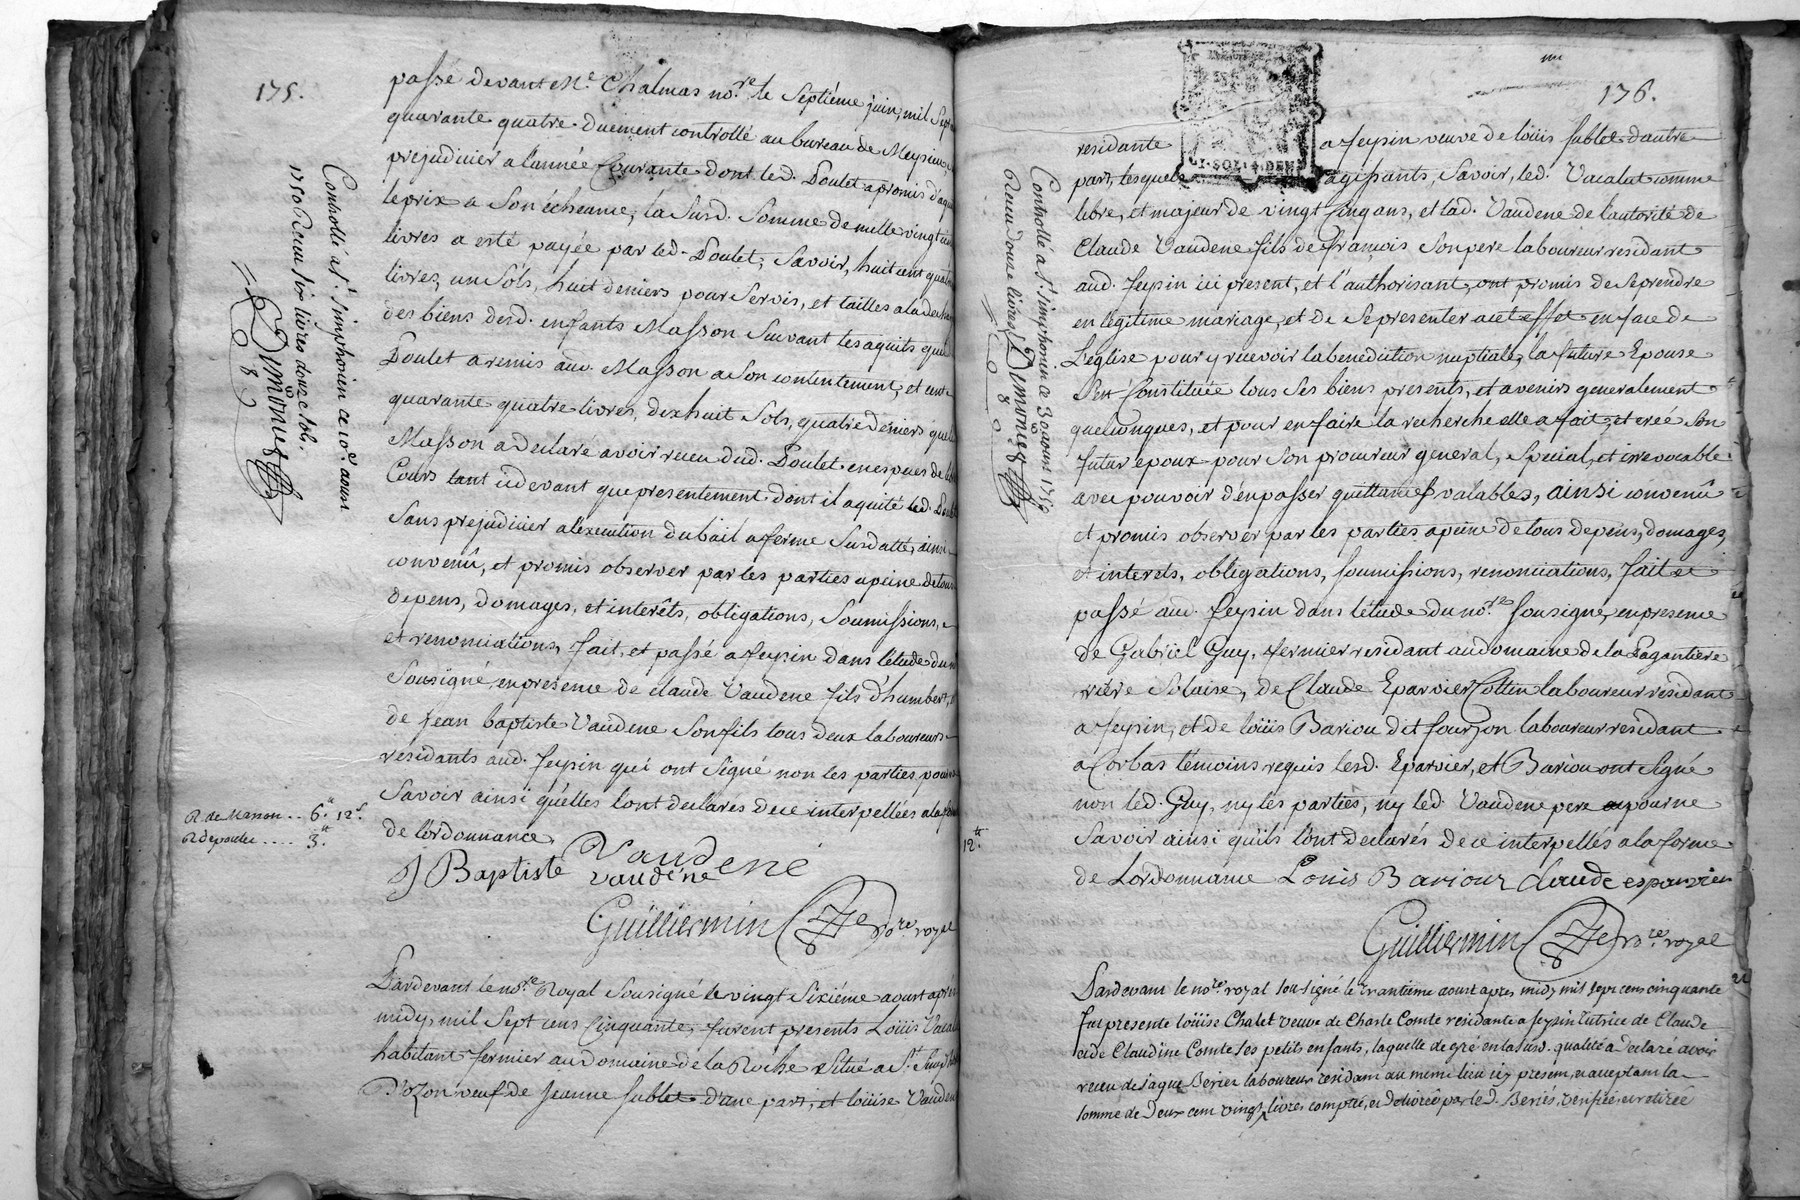 175.
passé devant Me. Chalmas no.re le Septiéme juin, mil Sept
quarante quatre. duëment controllé au bureau de Meysieu,
prejudicier a l'année Courante dont led. Poulet a promis d'aqu
le prix a Son écheance, la Susd. Somme de mille vingt
livres a esté payée par led. Poulet, Savoir, huit cent
livres, un Sols, huit deniers pour Servis, et tailles a la decha
des biens desd. enfants Masson Suivant les aquits que
Poulet a remis aud. Masson a Son contentement, et cent
quarante quatre livres, dix huit Sols, quatre deniers que
Masson a declaré avoir receu dud. Poulet en especes de
Cours tant cidevant que presentement dont il a quité led.
Sans prejudicier a l'execution du bail a ferme Susdatté, ainsi
convenû, et promis observer par les parties a peine de tous
depens, domages, et interêts, obligations, Soumissions,
et renonciations, fait, et passé a feysin dans l'étude du
Sousigné, en presence de claude Vaudene fils d'humbert,
de jean baptiste Vaudene Son fils tous deux laboureurs
residants aud. feysin qui ont Signé non les parties pour
Savoir ainsi qu'elles l'ont declarés de ce interpellées a la
de l'ordonnance
Vaudené
J Baptiste vaudéne
Guilliermin no.re royal
Controllé a St. simphorien ce 10e. aoust
1750 Receu six livres douze sols.
R. de Masson .. 6.tt 12.s
R. de poulet .... 3.tt
Pardevant le no.re Royal Sousigné le vingt Sixiéme aoust aprés
midy, mil Sept cens Cinquante, furent presents Loüis Vacalut
habitant fermier au Domaine de la Roche Situé a St.
D'Ozon veuf de Jeanne Sublet d'une part, et loüise Vaudene
176.
residante a feysin veuve de loüis Sublet d'autre
I. SOL. 4. DEN
part, lesquels agissants, Savoir, led. Vacalut comme
libre, et majeur de vingt Cinq ans, et lad. Vaudene de l'autorité de
Claude Vaudene fils de françois Son pere laboureur residant
aud. feysin ici present, et l'authorisant, ont promis de Se prendre
en legitime mariage, et de Se presenter a cet effet en face de
L'eglise pour y recevoir la benediction nuptiale, la future Epouse
S'en Constituée tous Ses biens presents, et avenirs generalement
quelconques, et pour en faire la recherche elle a fait, et creé Son
futur epoux pour Son procureur general, Special, et irrevocable
avec pouvoir d'en passer quittances valables, ainsi convenû
et promis observer par les parties a peine de tous depens, domages,
et interets, obligations, soumissions, renonciations, fait et
passé aud. feysin dans l'étude du no.re Sousigné, en presence
de Gabriel Guy, fermier residant au domaine de la Pagantiere
riere Solaise, de Claude Eparvier Cottin laboureur residant
a feysin, et de loüis Bariou dit fourzon laboureur residant
a Corbas témoins requis lesd. Eparvier, et Bariou ont Signé
non led. Guy, ny les parties, ny led. Vaudene pere pour ne
Savoir ainsi qu'ils l'ont declarés de ce interpellés a la forme
de L'ordonnance Louis Bariour claude esparvier
Guilliermin no.re royal
Controllé a St. simphorien ce 30 aoust 1750
Receu douze livres
12.tt
Pardevant le no.re royal sousigné le trantieme aoust apres midy mil sept cens cinquante
fut presente loüise Chalet veuve de Charle Comte residante a feysin tutrice de Claude
et de Claudine Comte ses petits enfants, laquelle de gré en la susd. qualité a declaré avoir
receu de jaque Beries laboureur residant au meme lieu icy present, et acceptant la
somme de deux cent vingt livres comptée, et delivrée par led. Beriés, verifiée, et retirée